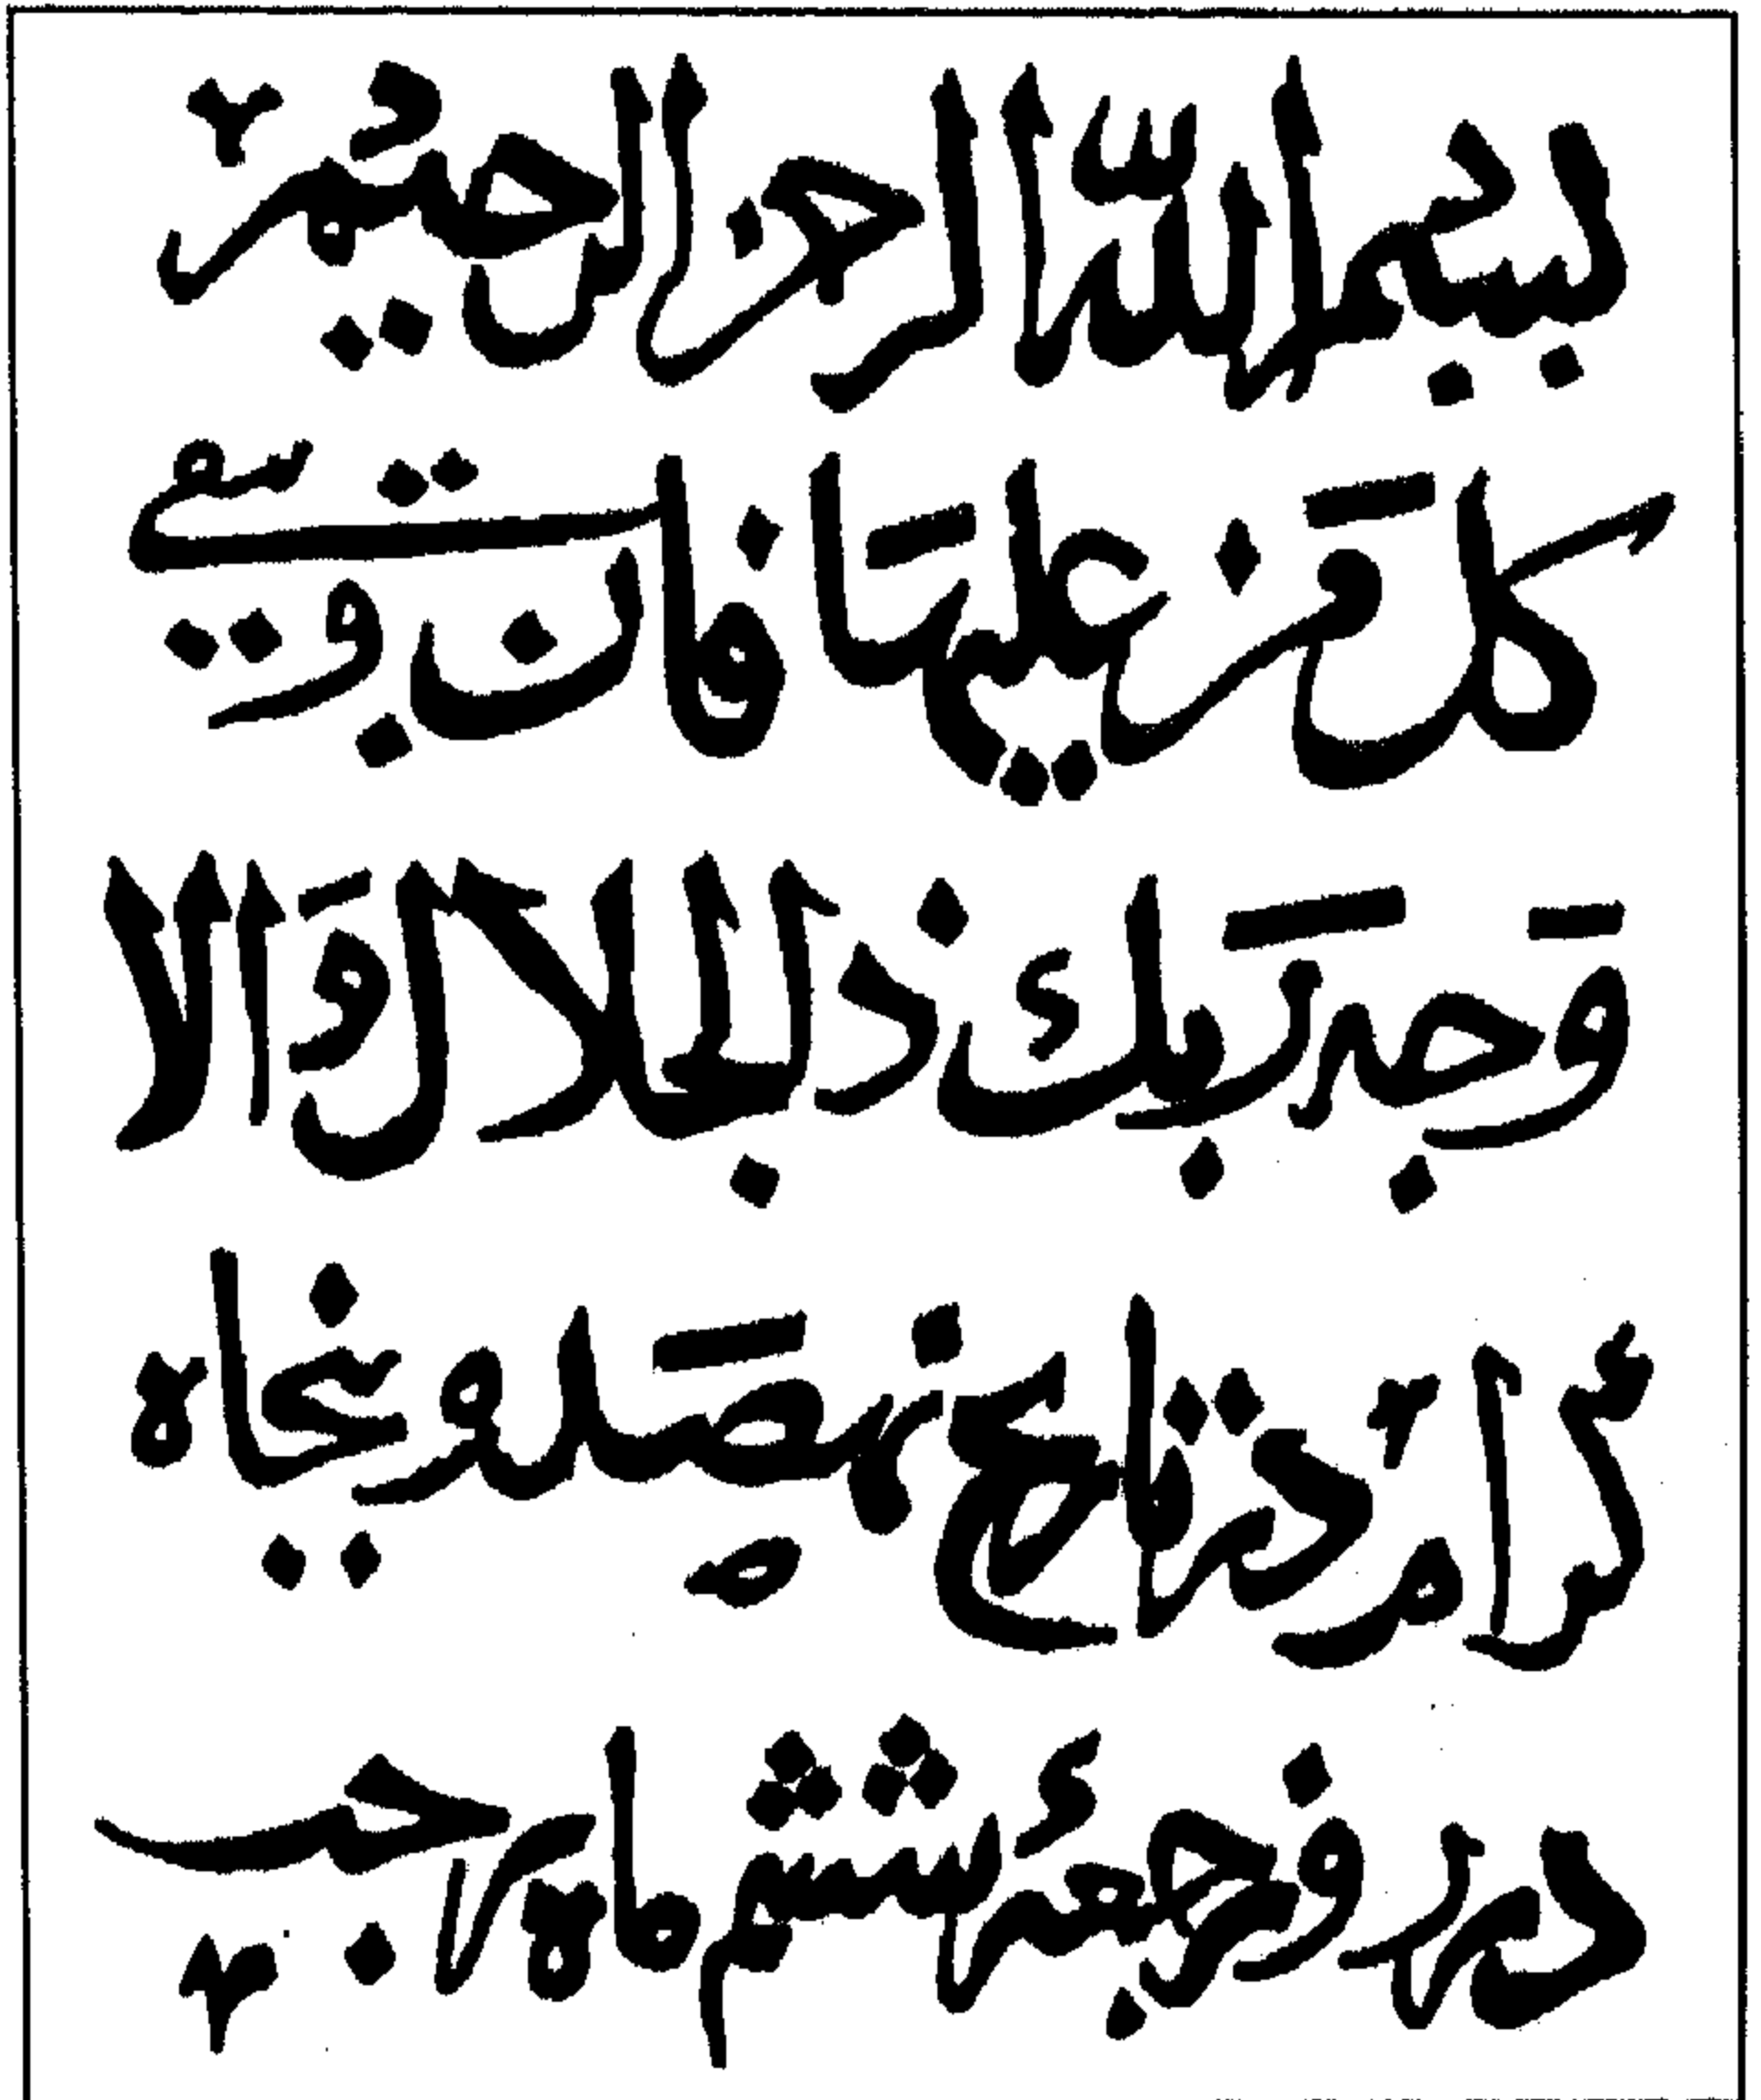 بسم الله الرحمن الرحيم
كل من عليها فان و يبقى
وجه ربك ذالجلال والا
كرام در تاريخ نهصد و بنجاه
در روز جمعه ششم ماه رجب